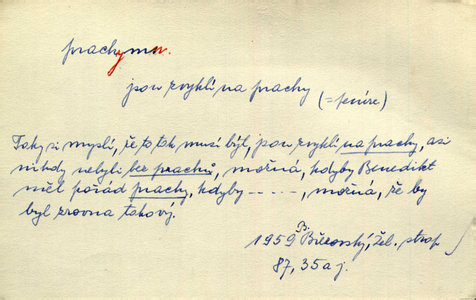 prachy m.
jsou zvyklí na prachy (= peníze)
Taky si myslí, že to tak musí být, jsou zvyklí na prachy, asi
nikdy nebyli bez prachů, možná, kdyby Benedikt
měl pořád prachy, kdyby - - - -, možná, že by
byl zrovna takový.
1959 B. Březovský, Žel. strop
87, 35 a j.